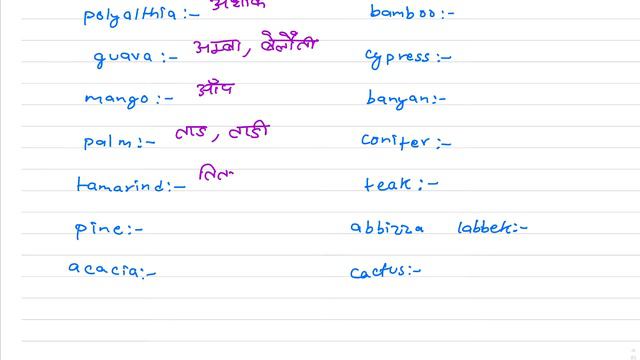 polyalthia:- अशोक
bamboo:-
guava:- अम्बा, बेलौती
cypress:-
mango:- आँप
banyan:-
palm:- ताड, ताडी
conifer:-
tamarind:- तित
teak:-
pine:-
abbizza labbek:-
acacia:-
cactus:-